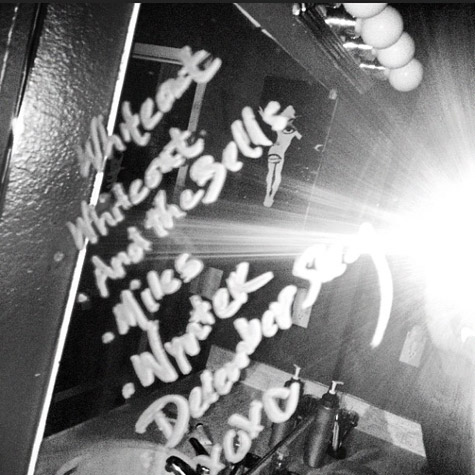 Whiteout
Whiteout.
.And the Bells
.Miles
.Wyntek
December
XOXO